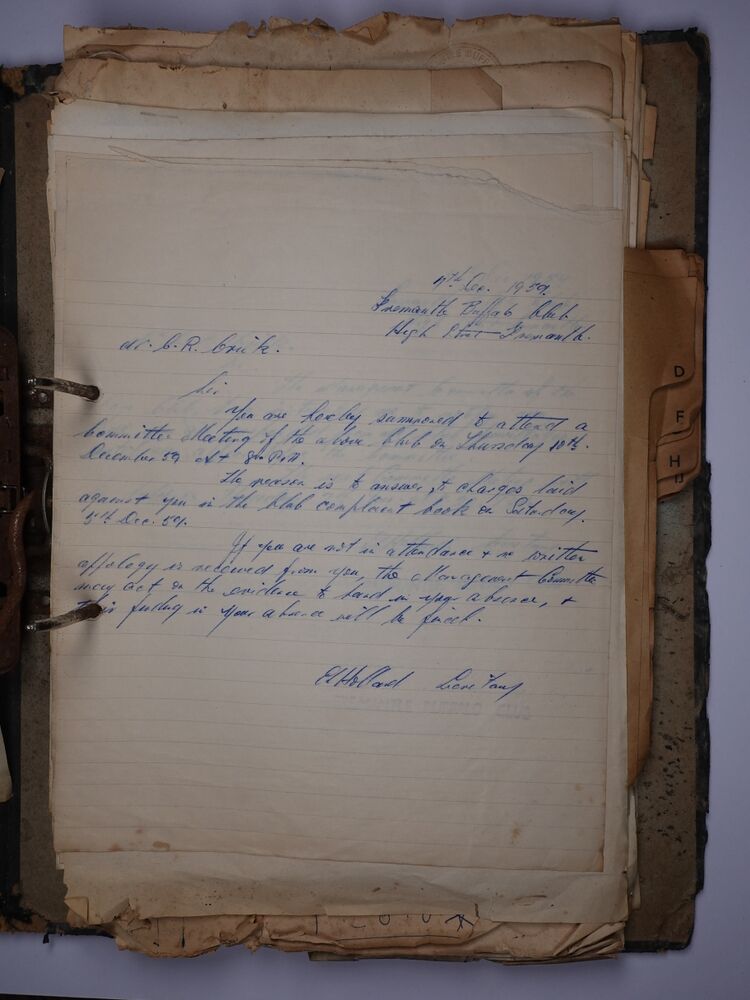 7th Dec. 1959.
Fremantle Buffalo Club
High Street Fremantle.
Mr. C. R. Crick.
Sir
You are hereby summoned to attend a
Committee Meeting of the above Club on Thursday 10th
December 59 At 8 PM.
The reason is to answer to charges laid
against you in the Club complaint book on Saturday,
5th Dec. 59.
If you are not in attendance + no written
appology is received from you, the Management Committee
may act on the evidence to hand in your absence, +
finding in your absence will be
Holland Secretary
D
F
H